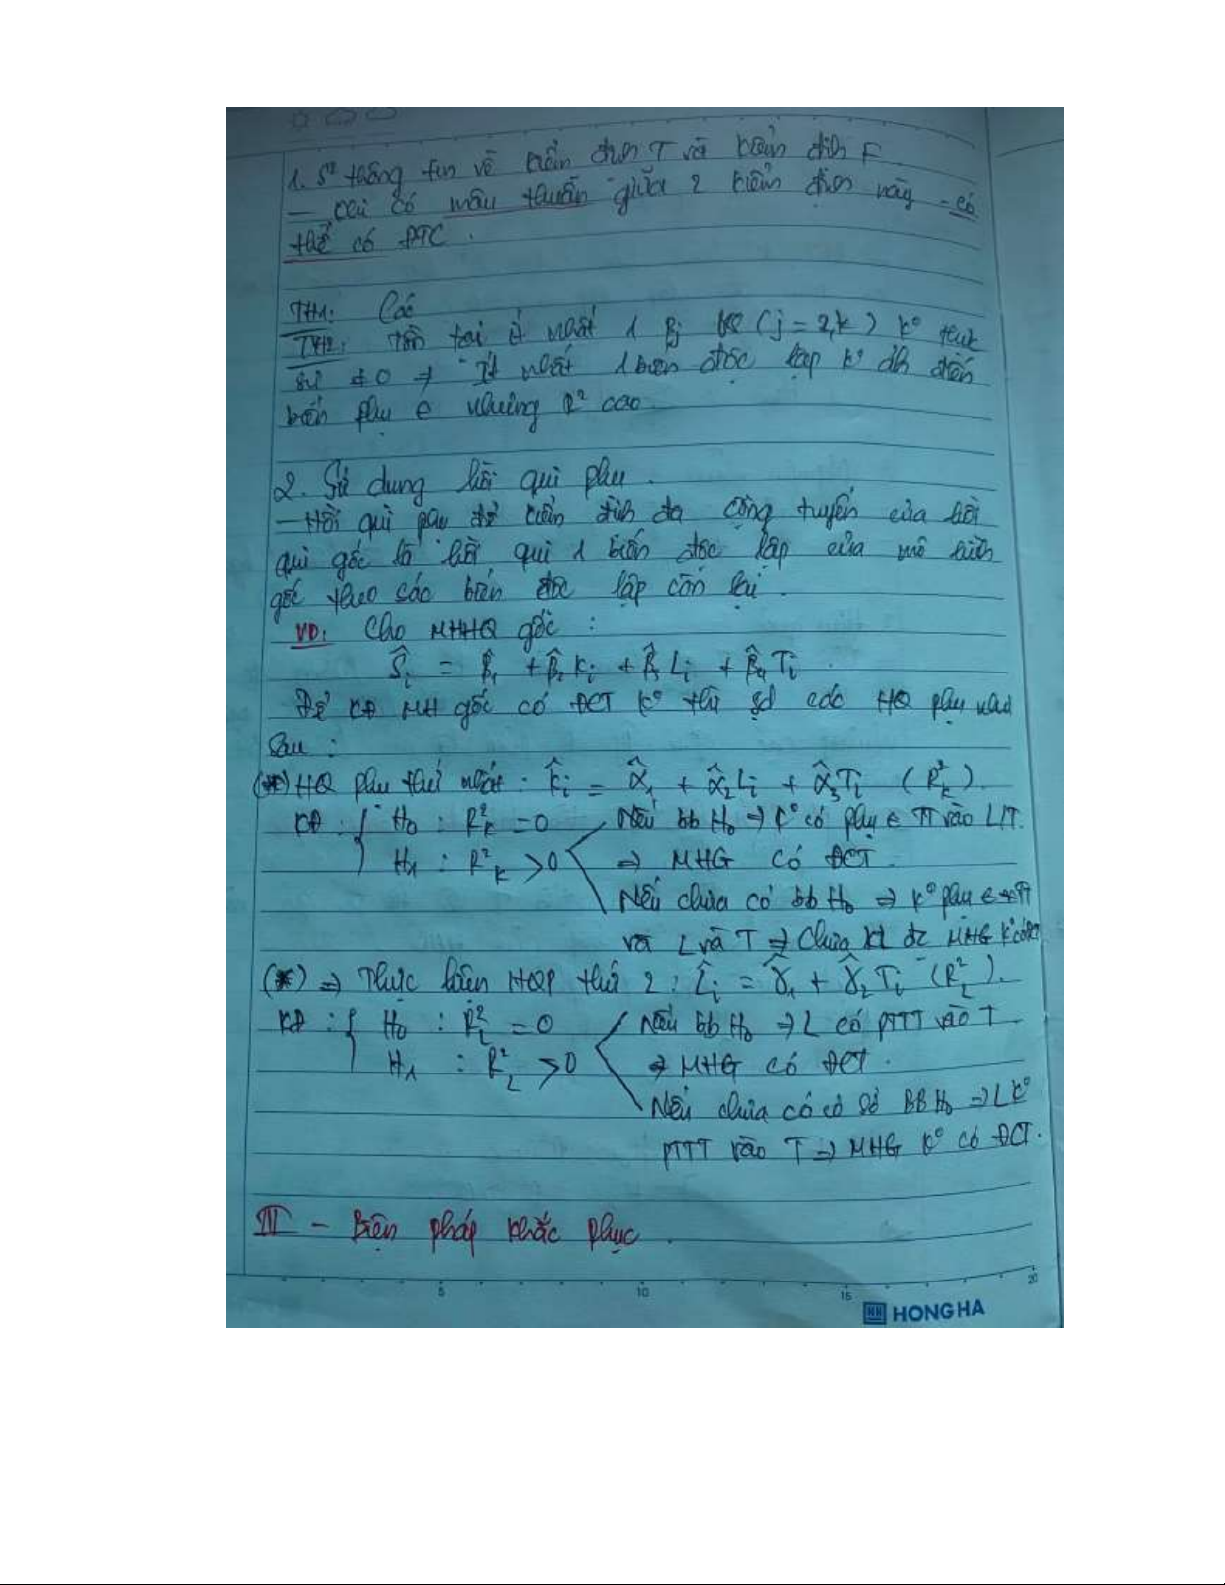 1. S² thông tin về kiểm định T và kiểm định F
– Khi có mâu thuẫn giữa 2 kiểm định này – có
thể có ĐTC.
TH1: Các
TH2: tồn tại ít nhất 1 βj (j = 2,k) k° thực
sự ≠ 0 → Ít nhất 1 biến độc lập k° ảh đến
biến phụ e nhưng R² cao
2. Sử dụng hồi qui phụ.
– Hồi qui phụ để kiểm định đa cộng tuyến của hồi
qui gốc là hồi qui 1 biến độc lập của mô hình
gốc theo các biến độc lập còn lại.
VD: Cho MHHQ gốc :
Ŝi = β̂1 + β̂2 Ki + β̂3 Li + β̂4 Ti .
Để KĐ MH gốc có ĐCT k° thì sd các HQ phụ như
sau :
(*) HQ phụ thứ nhất : K̂i = α̂1 + α̂2Li + α̂3Ti (R²K).
KĐ : { H0 : R²K = 0 Nếu bb H0 → K có phụ e TT vào L/T.
H1 : R²K > 0 ⇒ MHG có ĐCT.
Nếu chưa có bb H0 ⇒ K° phụ e TT
và L và T ⇒ Chưa kl đc MHG k° có ĐCT
(*) ⇒ Thực hiện HQP thứ 2 : L̂i = γ̂1 + γ̂2 Ti (R²L).
KĐ : { H0 : R²L = 0 Nếu bb H0 → L có PTTT vào T
H1 : R²L > 0 ⇒ MHG có ĐCT.
Nếu chưa có cơ sở BB H0 ⇒ L k°
PTTT vào T ⇒ MHG k° có ĐCT.
III – Biện pháp khắc phục.
5 10 15 20
HH HONG HA